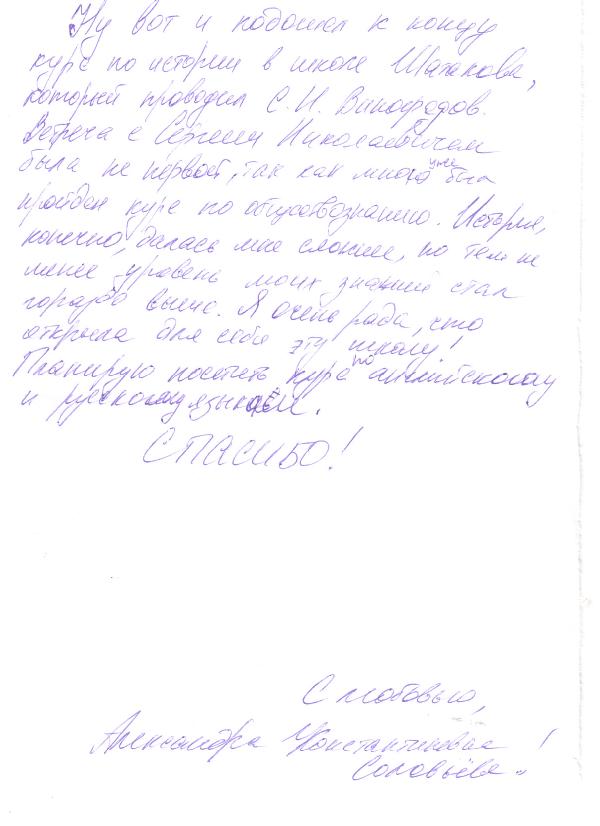 Ну вот и подошел к концу
курс по истории в школе Шатакова,
который проводил С.Н. Виноградов.
Встреча с Сергеем Николаевичем
была не первой, так как мною уже был
пройден курс по обществознанию. История,
конечно, далась мне сложнее, но тем не
менее уровень моих знаний стал
гораздо выше. Я очень рада, что
открыла для себя эту школу!
Планирую посетить курс по английскому
и русскому языкам.
СПАСИБО!
С любовью,
Александра Константиновна !
Соловьёва..